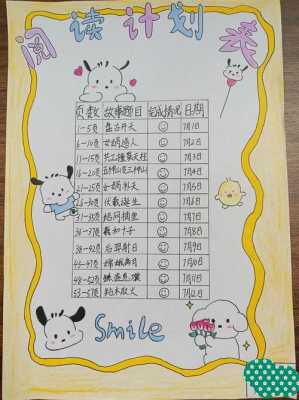 阅读计划表
页数 故事题目 完成情况 日期
1-5页 盘古开天 7月1日
6-10页 女娲造人 7月2日
11-15页 共工撞塌天柱 7月3日
16-20页 7月4日
21-25页 女娲补天 7月5日
26-30页 伏羲诞生 7月6日
31-35页 结网捕鱼 7月7日
36-37页 羲和十子 7月8日
38-42页 后羿射日 7月9日
43-47页 嫦娥奔月 7月10日
48-52页 7月11日
53-57页 钻木取火 7月12日
Smile